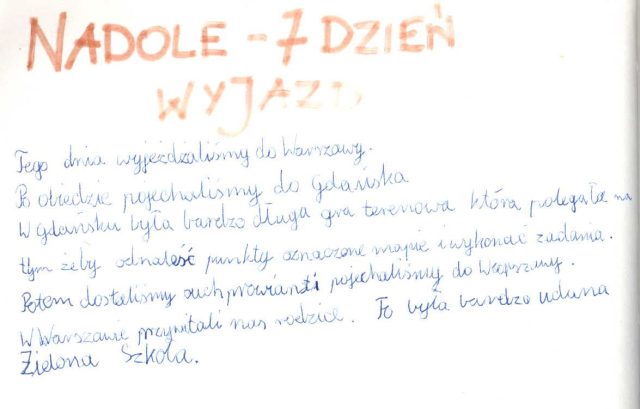 NADOLE - 7 DZIEŃ
WYJAZD
Tego dnia wyjeżdżaliśmy do Warszawy.
Po obiedzie pojechaliśmy do Gdańska
W gdańsku była bardzo długa gra terenowa która polegała na
tym żeby odnaleść punkty oznaczone mapie i wykonać zadania.
Potem dostaliśmy suchprowiant i pojechaliśmy do Warszawy.
W Warszawie przywitali nas rodzice. To była bardzo udana
Zielona Szkoła.